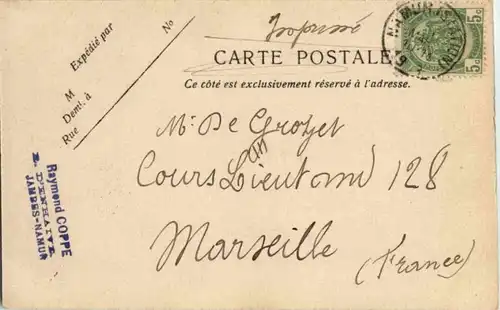 Imprimé
CARTE POSTALE
Ce côté est exclusivement réservé à l'adresse.
Expédié par
M
Dem.t à
Rue
No
NAMUR
5c 5c
Mr. De Groζet
Cours Lieutaud 128
Marseille
(France)
Raymond COPPE
R. D'ENHAIVE
JAMBES-NAMUR